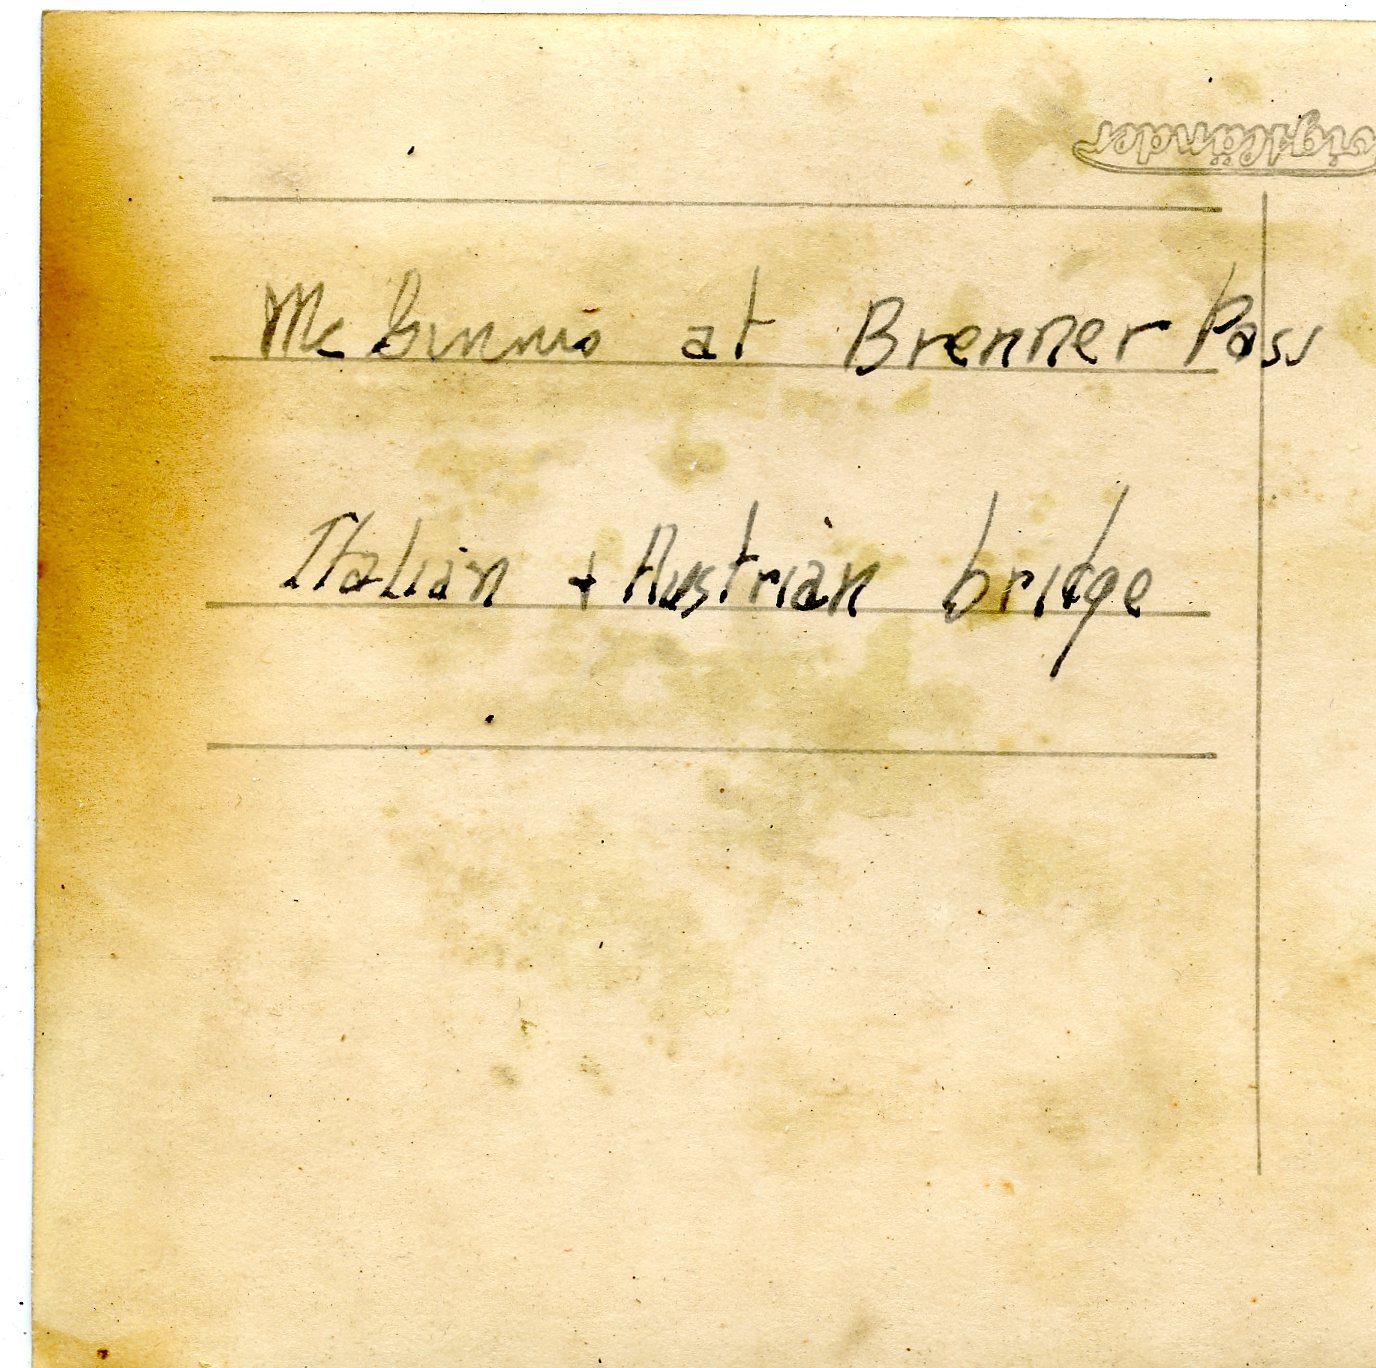 oigtländer
McGinnis at Brenner Pass
Italian + Austrian bridge